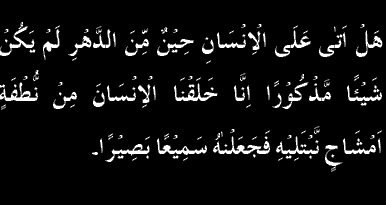 هَلْ اَتٰى عَلَى الْاِنْسَانِ حِيْنٌ مِّنَ الدَّهْرِ لَمْ يَكُنْ
شَيْئًا مَّذْكُوْرًا اِنَّا خَلَقْنَا الْاِنْسَانَ مِنْ نُّطْفَةٍ
اَمْشَاجٍ نَّبْتَلِيْهِ فَجَعَلْنٰهُ سَمِيْعًا بَصِيْرًا۔